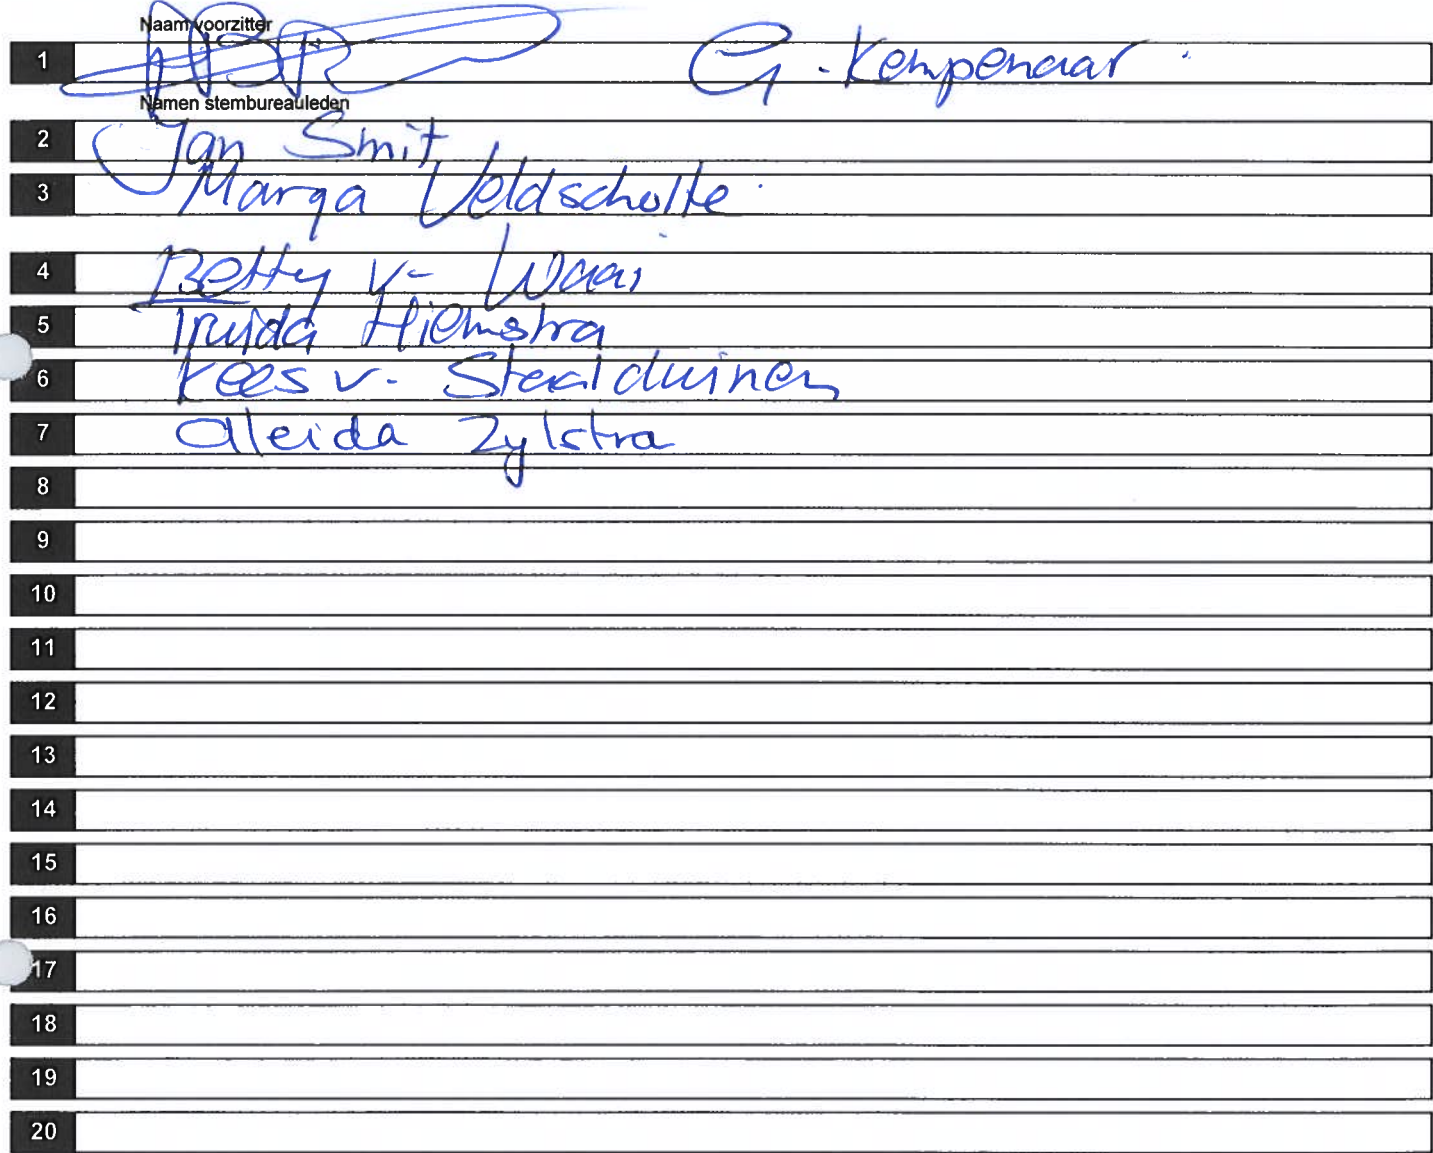 Naam voorzitter
1 G. Kempenaar
Namen stembureauleden
2 Jan Smit
3 Marga Veldscholte
4 Betty v. Waai
5 Truida Hiemstra
6 Kees v. Staalduinen
7 Aleida Zylstra
8
9
10
11
12
13
14
15
16
17
18
19
20